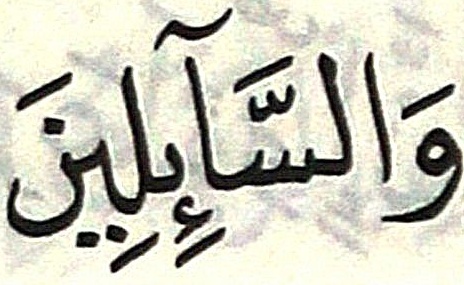 وَالسَّآئِلِينَ